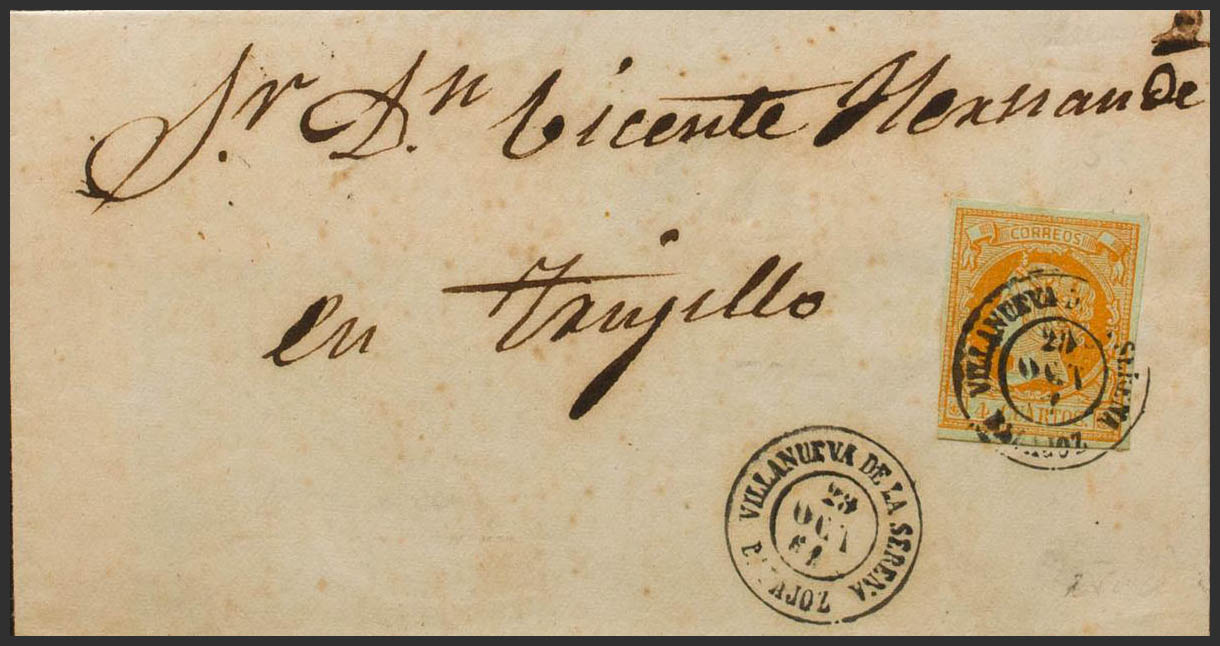 Sr. Dn. Vicente Hernande
en Trujillo
CORREOS
4 CUARTOS
VILLANUEVA D
SERENA
BADAJOZ
OCT
VILLANUEVA DE LA SERENA
BADAJOZ
28
OCT